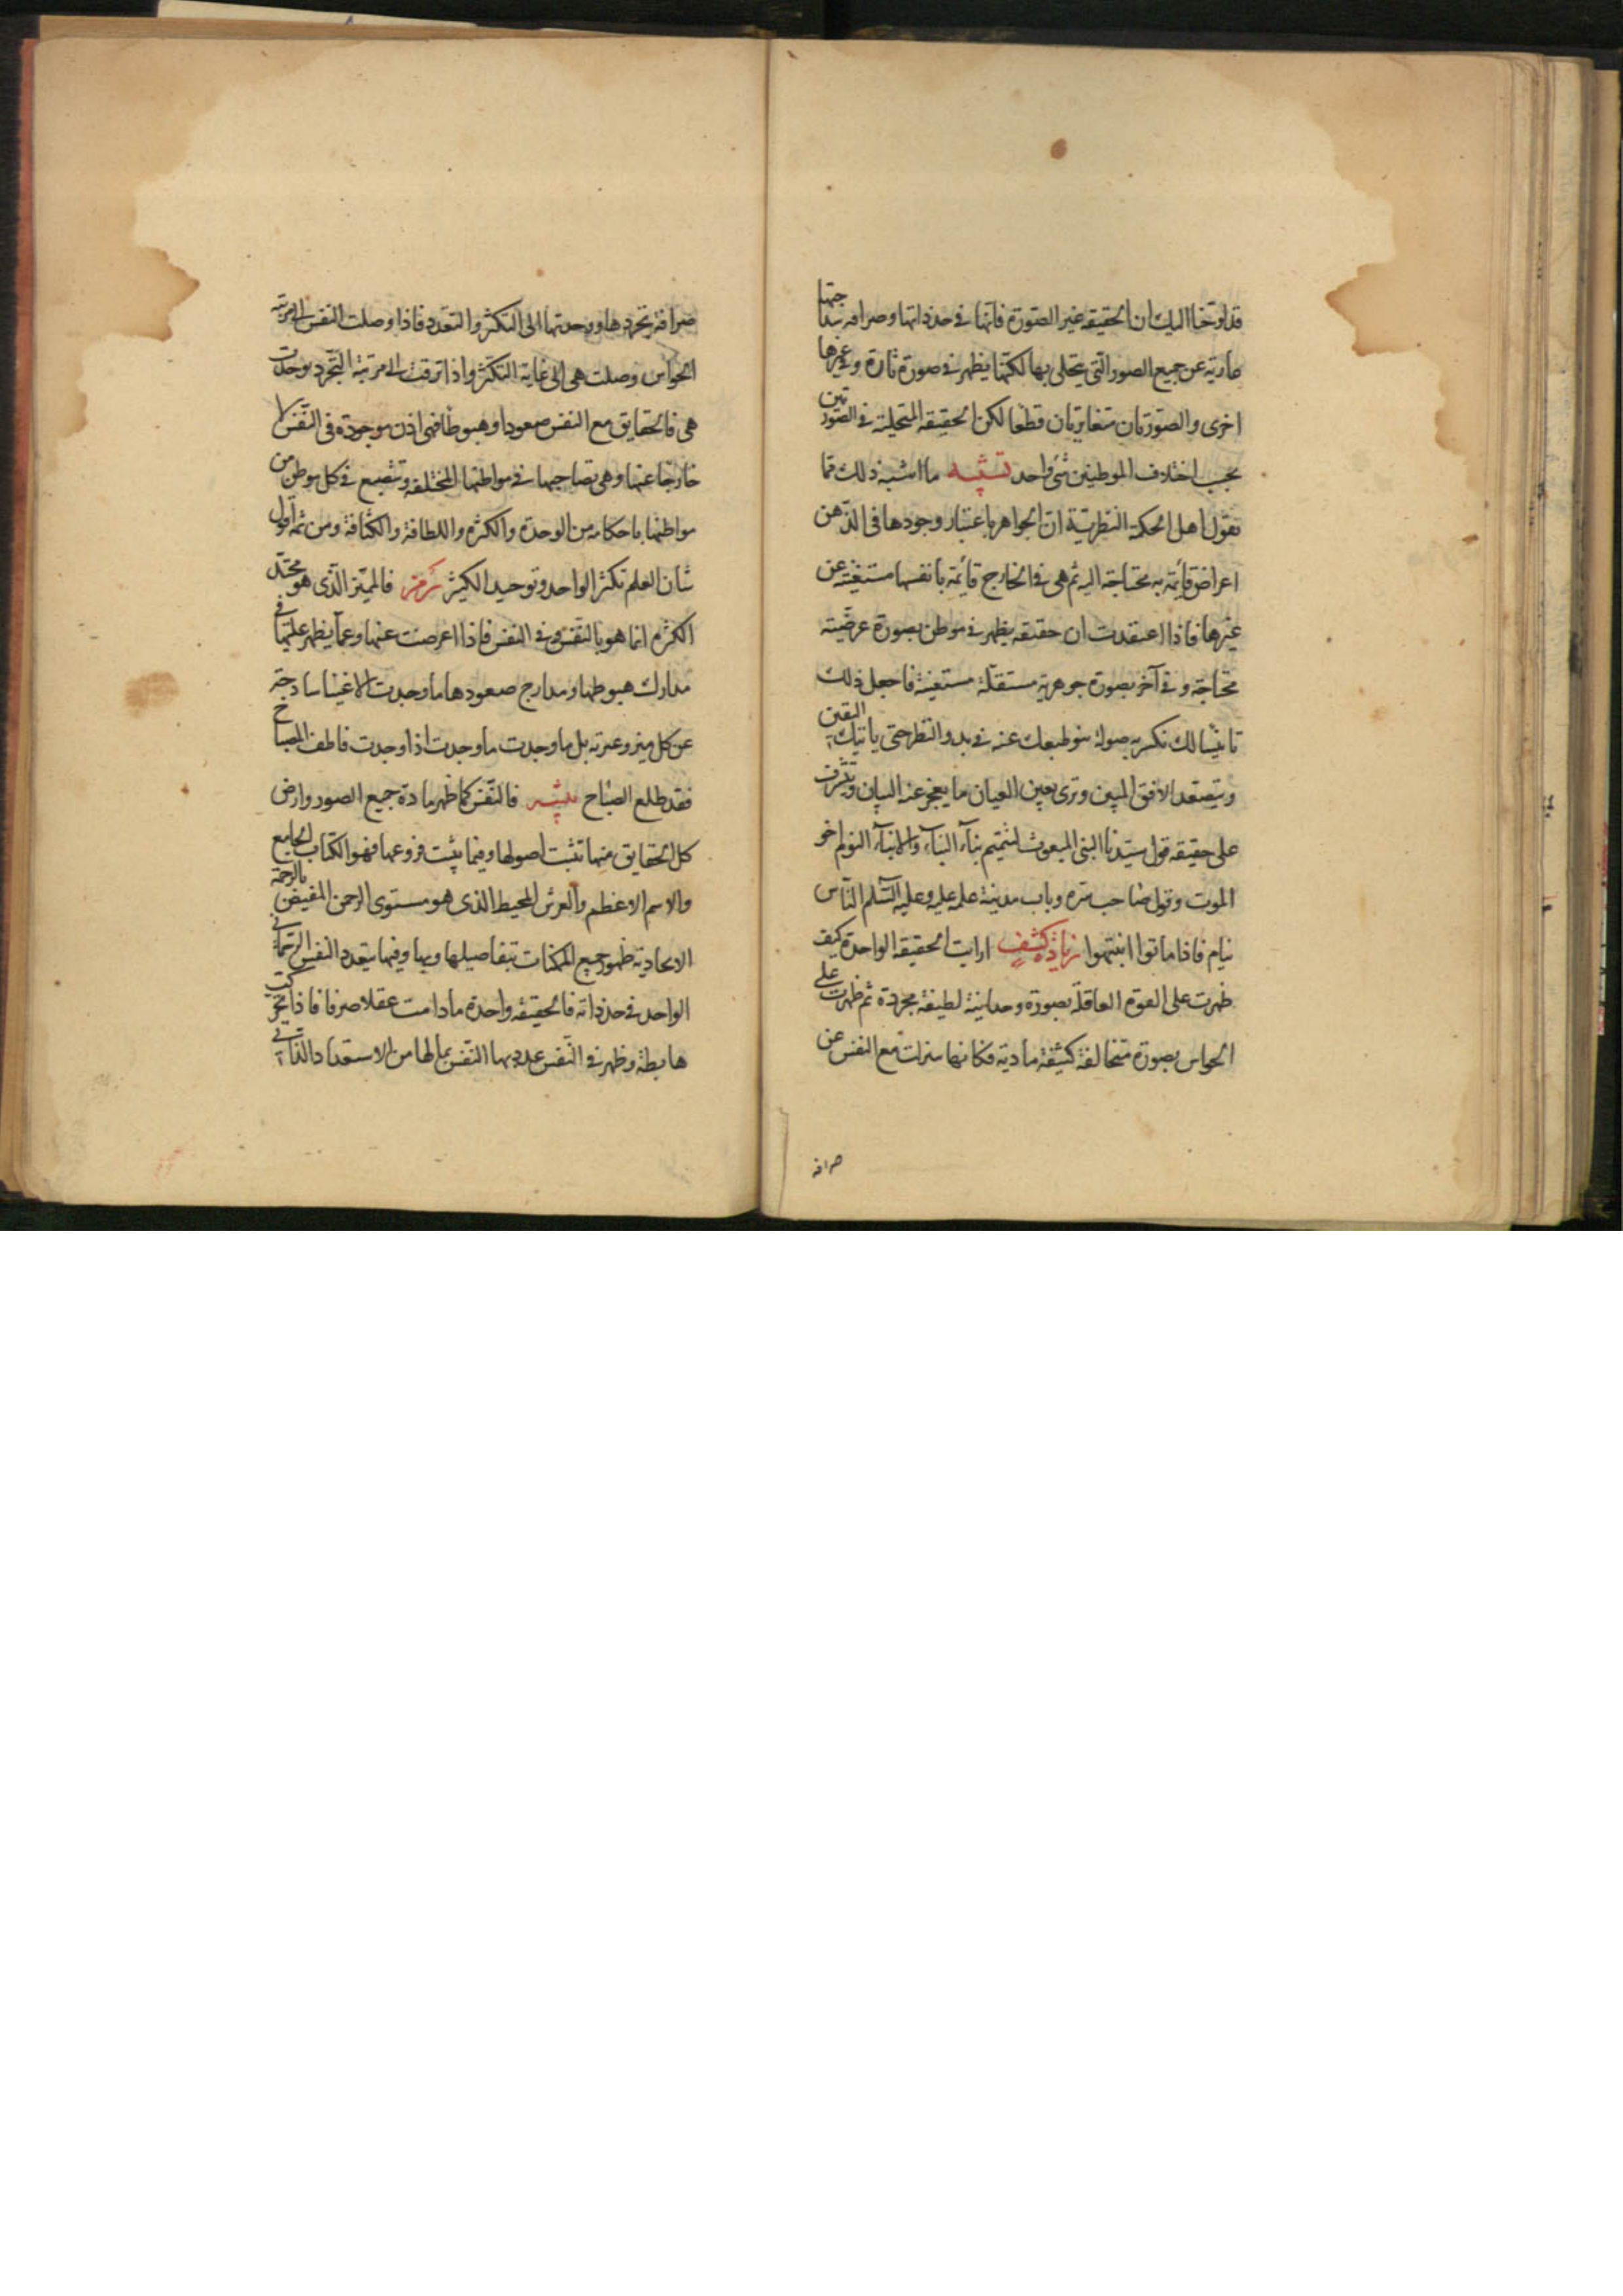 قد لوحنا اليك ان الحقيقة غير الصورة فانها في حد ذاتها وصرافة سذاجتها
عارية عن جميع الصور التي يتجلى بها لكنها يظهر في صورة تارة وفي غيرها
اخرى والصورتان متغايرتان قطعا لكن الحقيقة المتجلية في الصورتين
بحسب اختلاف الموطنين شئ واحد تشبيه ما اشبه ذلك بما
يقول اهل الحكمة النظرية ان الجواهر باعتبار وجودها في الذهن
اعراض قائمة به محتاجة اليه ثم هي في الخارج قائمة بانفسها مستغنية عن
غيرها فاذا اعتقدت ان حقيقة يظهر في موطن بصورة عرضية
محتاجة وفي آخر بصورة جوهرية مستقلة مستغنية فاجعل ذلك
تانيسا لك تكسر به صولة نبو طبعك عنه في بدو النظر حتى ياتيك اليقين
وتصعد الافق المبين وترى بعين العيان ما يعجز عنه البيان وتشرف
على حقيقة قول سيدنا النبي المبعوث لتتميم بناء النباء والانباء النوم اخو
الموت وقول صاحب سره وباب مدينة علمه عليه وعليه السلم الناس
نيام فاذا ماتوا انتبهوا زيادة كشف ارايت الحقيقة الواحدة كيف
ظهرت على القوة العاقلة بصورة وحدانية لطيفة مجردة ثم ظهرت على
الحواس بصورة متخالفة كثيفة مادية فكانها تنزلت مع النفس عن
صرافة
صرافة تجردها ووحدتها الى التكثر والتعدد فاذا وصلت النفس الى مرتبة
الحواس وصلت هي الى غاية التكثر واذا ترقت الى مرتبة التجرد توحدت
هي فالحقايق مع النفس صعودا وهبوطا فهي اذن موجودة في النفس لا
خارجا عنها وهي تصاحبها في مواطنها المختلفة وتنصبغ في كل موطن من
مواطنها باحكامه من الوحدة والكثرة واللطافة والكثافة ومن ثمه اقول
شان العلم تكثر الواحد وتوحيد الكثير رمز فالميز الذي هو محتد
الكثرة انما هو بالنفس وفي النفس فاذا اعرضت عنها وعما يظهر عليها في
مدارك هبوطها ومدارج صعودها ما وجدت الا عينا ساذجة
عن كل ميز وغيرته بل ما وجدت ما وجدت اذا وجدت فاطف المصباح
فقد طلع الصباح تنبيه فالنفس كما ظهر مادة جميع الصور وارض
كل الحقايق منها تثبت اصولها وفيها ينبت فروعها فهو الكتاب الجامع
والاسم الاعظم والعرش المحيط الذي هو مستوى الرحمن المفيض بالرحمة
الايجادية ظهور جميع الممكنات بتفاصيلها وبها وفيها يتعدد النفس الرحماني
الواحد في حد ذاته فالحقيقة واحدة ما دامت عقلا صرفا فاذا تحركت
هابطة وظهر في النفس عددها النفس بما لها من الاستعداد الذاتي